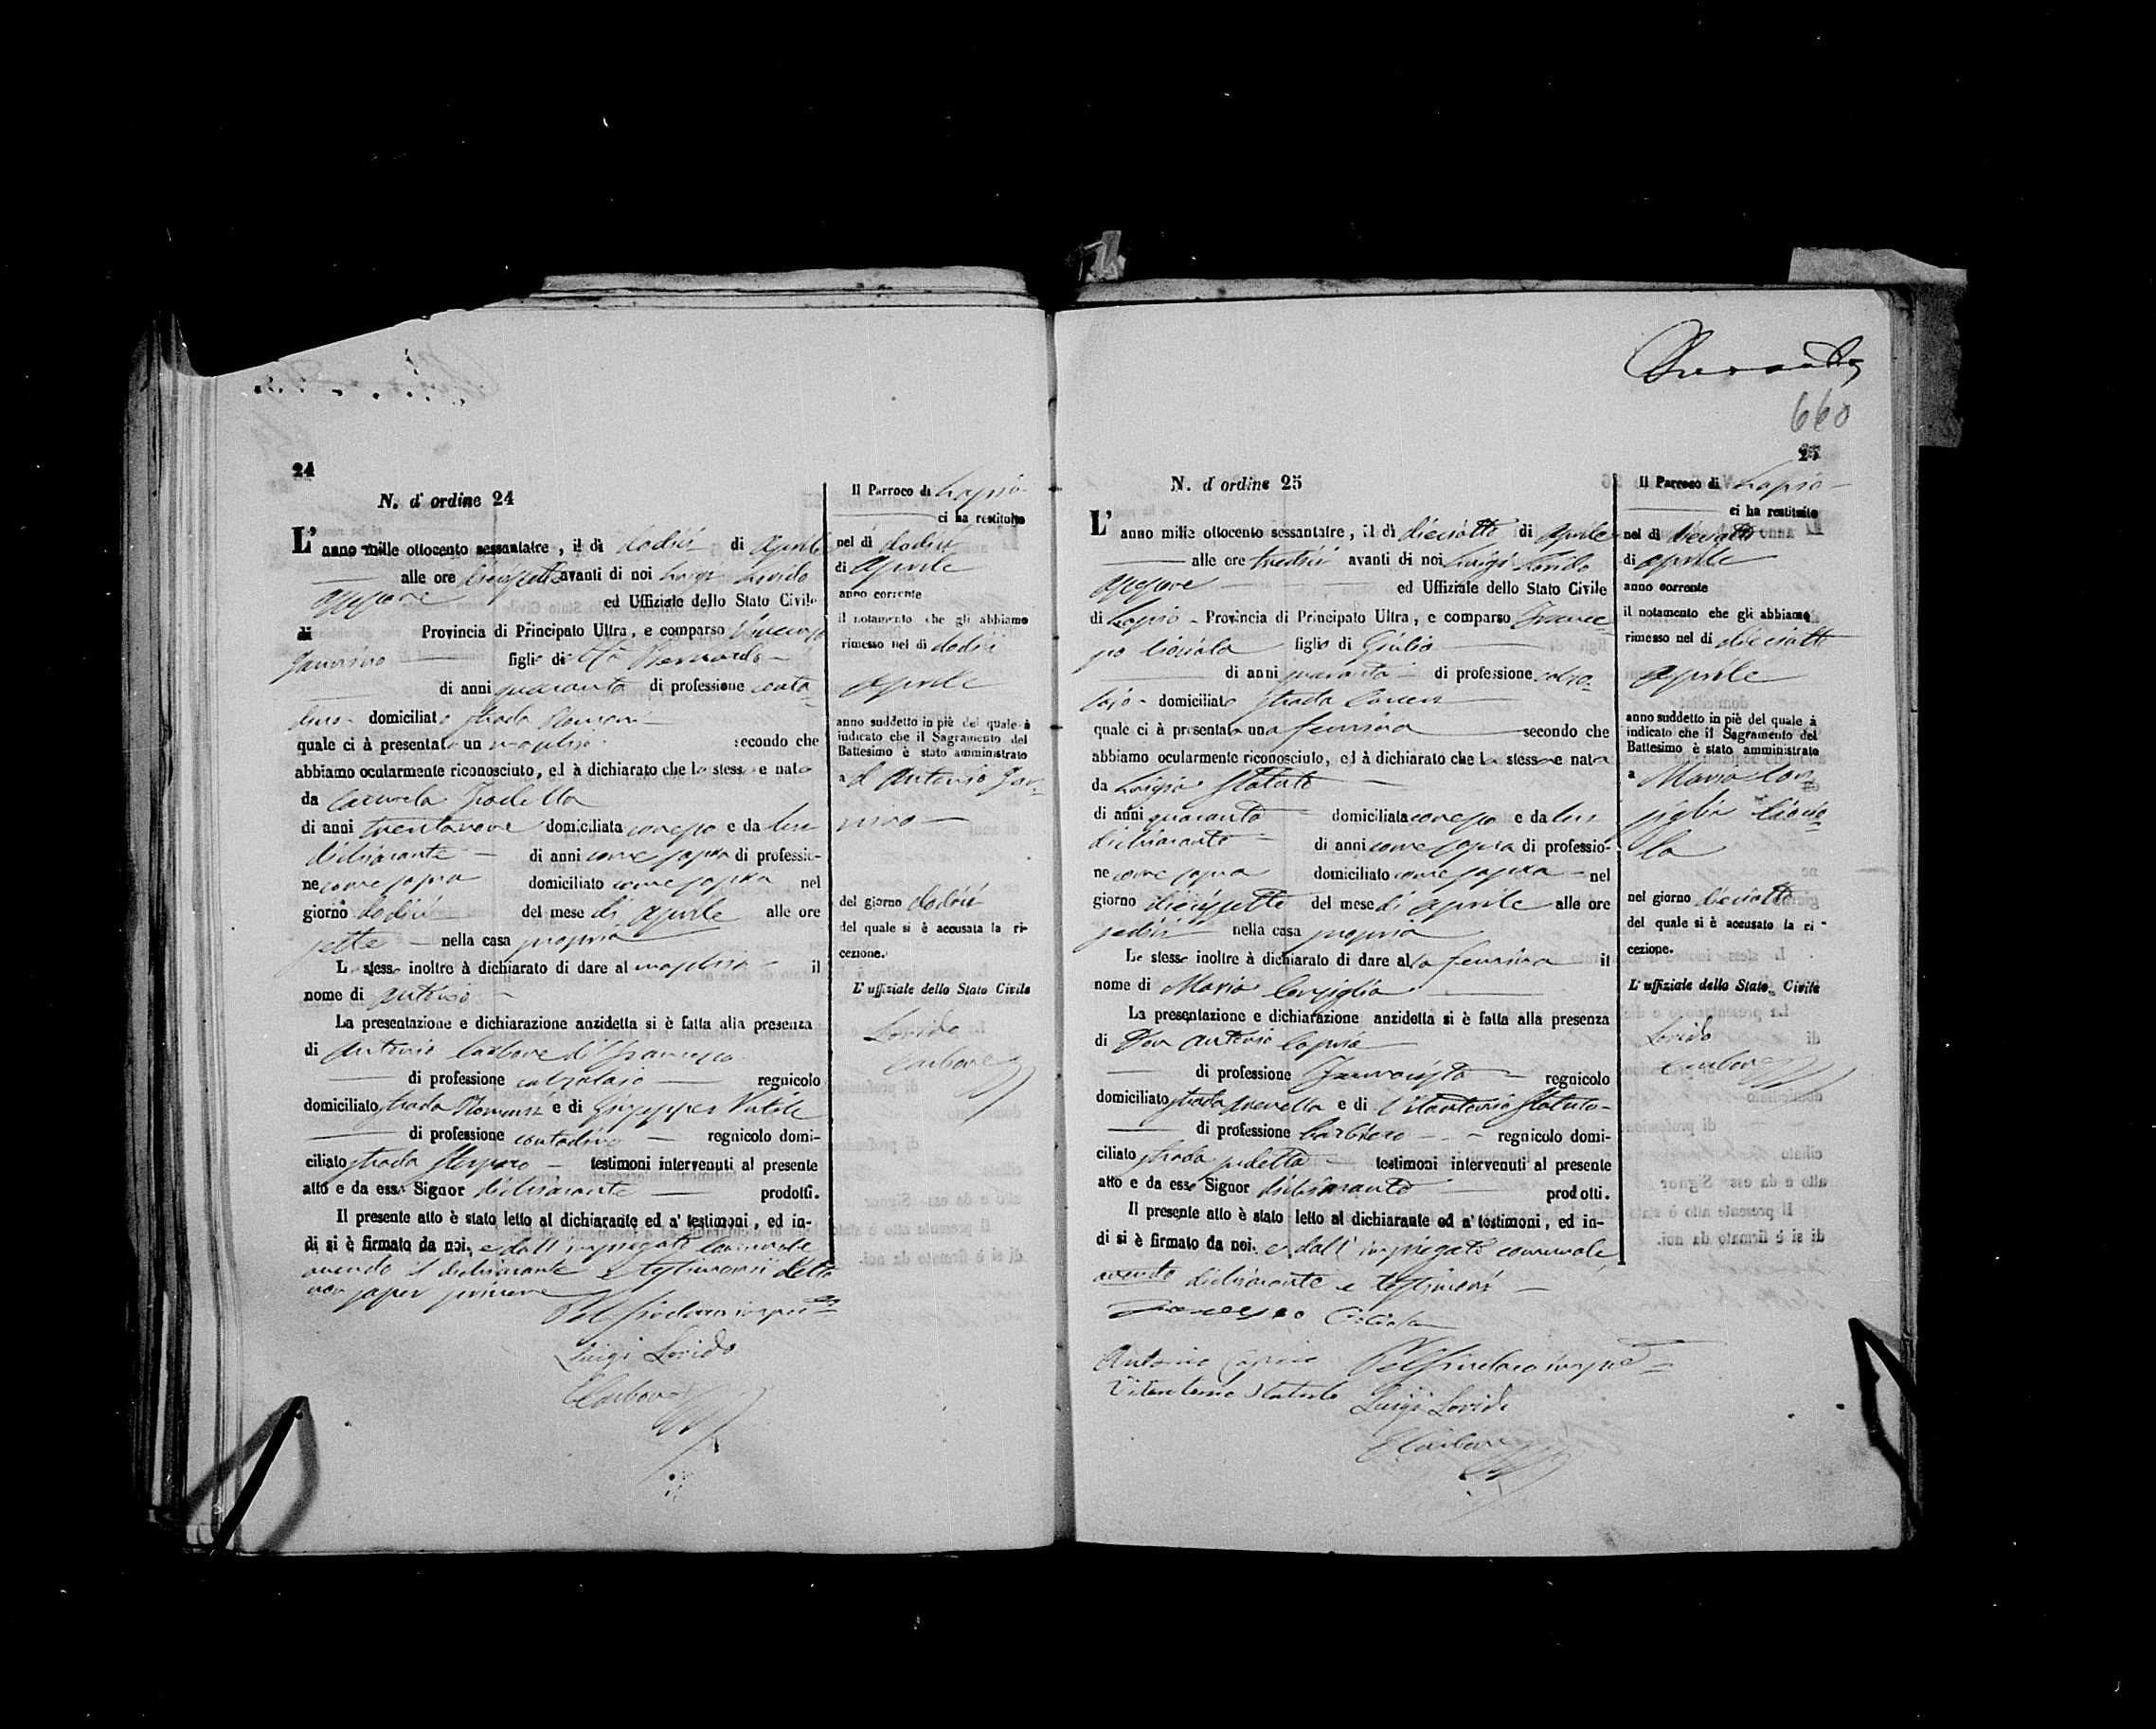 24
N. d' ordine 24
L' anno mille ottocento sessantatre, il dì dodici di Aprile
alle ore diecisette avanti di noi Luigi Lorido
Assessore ed Uffiziale dello Stato Civile
di Provincia di Principato Ultra, e comparso Vincenzo
figlio di Bernardo
di anni quaranta di professione conta-
dino domiciliato strada
quale ci à presentato un maschio secondo che
abbiamo ocularmente riconosciuto, ed à dichiarato che lo stesso e nato
da Carmela
di anni trentanove domiciliata con esso e da lui
dichiarante di anni come sopra di professio-
ne come sopra domiciliato come sopra nel
giorno dodici del mese di Aprile alle ore
sette nella casa propria
Lo stesso inoltre à dichiarato di dare al maschio il
nome di Antonio
La presentazione e dichiarazione anzidetta si è fatta alla presenza
di Antonio Carbone di Francesco
di professione calzolaio regnicolo
domiciliato strada e di Giuseppe
di professione contadino regnicolo domi-
ciliato strada testimoni intervenuti al presente
atto e da esso Signor dichiarante prodotti.
Il presente atto è stato letto al dichiarante ed a' testimoni, ed in-
di si è firmato da noi, e dall' impiegato Comunale
avendo il dichiarante e testimoni detto
non saper scrivere
Pel Sindaco
Luigi Lorido
Carbone
Il Parroco di Lapio
ci ha restituito
nel dì dodici
di Aprile
anno corrente
il notamento che gli abbiamo
rimesso nel dì dodici
Aprile
anno suddetto in piè del quale à
indicato che il Sagramento del
Battesimo è stato amministrato
a Antonio
del giorno dodici
del quale si è accusata la ri-
cezione.
L' uffiziale dello Stato Civile
Lorido
Carbone
660
25
N. d' ordine 25
L' anno mille ottocento sessantatre, il dì dieciotto di Aprile
alle ore tredici avanti di noi Luigi Lorido
Assessore ed Uffiziale dello Stato Civile
di Lapio Provincia di Principato Ultra, e comparso France-
sco Ciciola figlio di Giulio
di anni quaranta di professione calzo-
lajo domiciliato strada
quale ci à presentato una femina secondo che
abbiamo ocularmente riconosciuto, ed à dichiarato che la stessa e nata
da Luigia Statuto
di anni quaranta domiciliata con esso e da lui
dichiarante di anni come sopra di professio-
ne come sopra domiciliato come sopra nel
giorno diecissette del mese di Aprile alle ore
sedici nella casa propria
Lo stesso inoltre à dichiarato di dare alla femina il
nome di Maria Consiglia
La presentazione e dichiarazione anzidetta si è fatta alla presenza
di Don Antonio Caprio
di professione Farmacista regnicolo
domiciliato strada e di Vitantonio Statuto
di professione barbiere regnicolo domi-
ciliato strada testimoni intervenuti al presente
atto e da esso Signor dichiarante prodotti.
Il presente atto è stato letto al dichiarante ed a' testimoni, ed in-
di si è firmato da noi, e dall' impiegato comunale,
dichiarante e testimoni
Francesco Ciciola
Antonio Caprio Pel Sindaco
Vitantonio Statuto Luigi Lorido
Carbone
Il Parroco di Lapio
ci ha restituito
nel dì dieciotto
di Aprile
anno corrente
il notamento che gli abbiamo
rimesso nel dì dieciotto
Aprile
anno suddetto in piè del quale à
indicato che il Sagramento del
Battesimo è stato amministrato
a Maria Con-
siglia Cicio-
la
nel giorno dieciotto
del quale si è accusato la ri-
cezione.
L' uffiziale dello Stato Civile
Lorido
Carbone